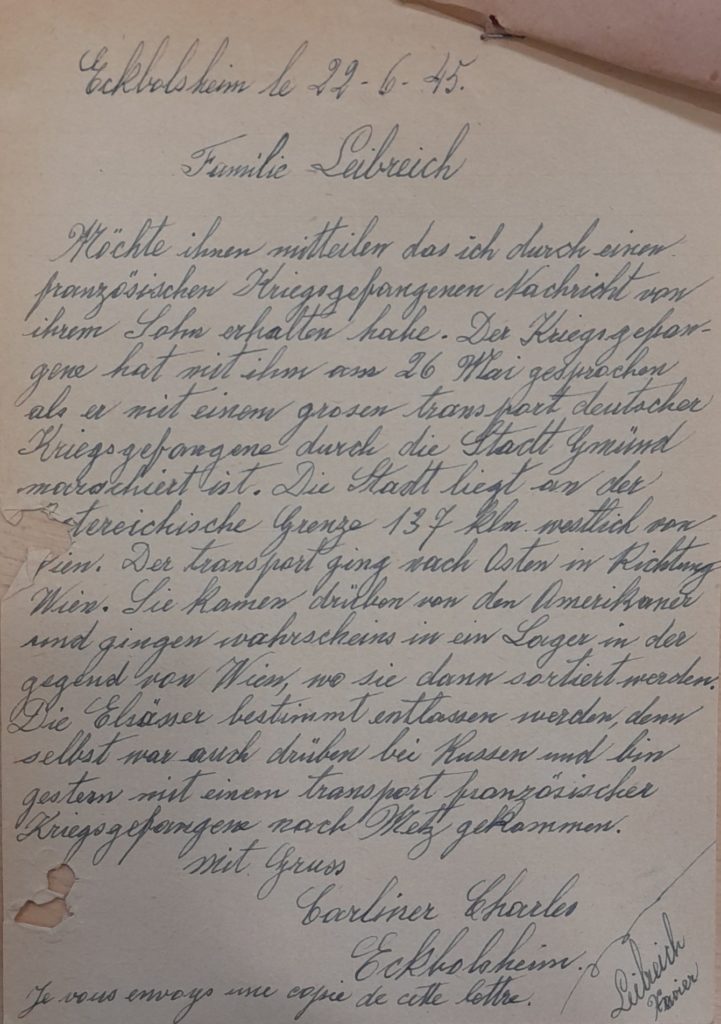 Eckbolsheim le 22-6-45.
Familie Leibreich
Möchte ihnen mitteilen das ich durch einen
französischen Kriegsgefangenen Nachricht von
ihrem Sohn erhalten habe. Der Kriegsgefan-
gene hat mit ihm am 26 Mai gesprochen
als er mit einem grosen transport deutscher
Kriegsgefangene durch die Stadt Gmünd
marschiert ist. Die Stadt liegt an der
tereichische Grenze 137 klm. westlich von
ien. Der transport ging nach Osten in Richtung
Wien. Sie kamen drüben von den Amerikaner
und gingen wahrscheins in ein Lager in der
gegend von Wien, wo sie dann sortiert werden.
Die Elsässer bestimmt entlassen werden, denn
selbst war auch drüben bei Russen und bin
gestern mit einem transport französischer
Kriegsgefangene nach Metz gekommen.
Mit Gruss
Carliner Charles
Eckbolsheim.
Je vous envoys une copie de cette lettre.
Leibreich
Xavier